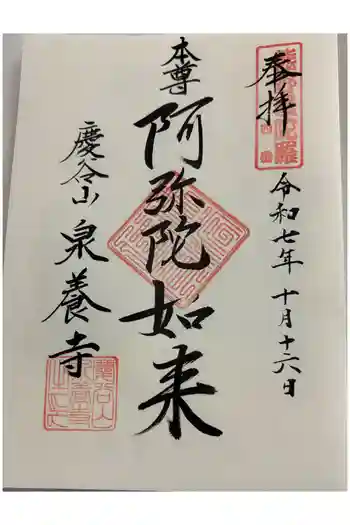 奉拝
令和七年 十月十六日
本尊
阿弥陀如来
慶令山 泉養寺